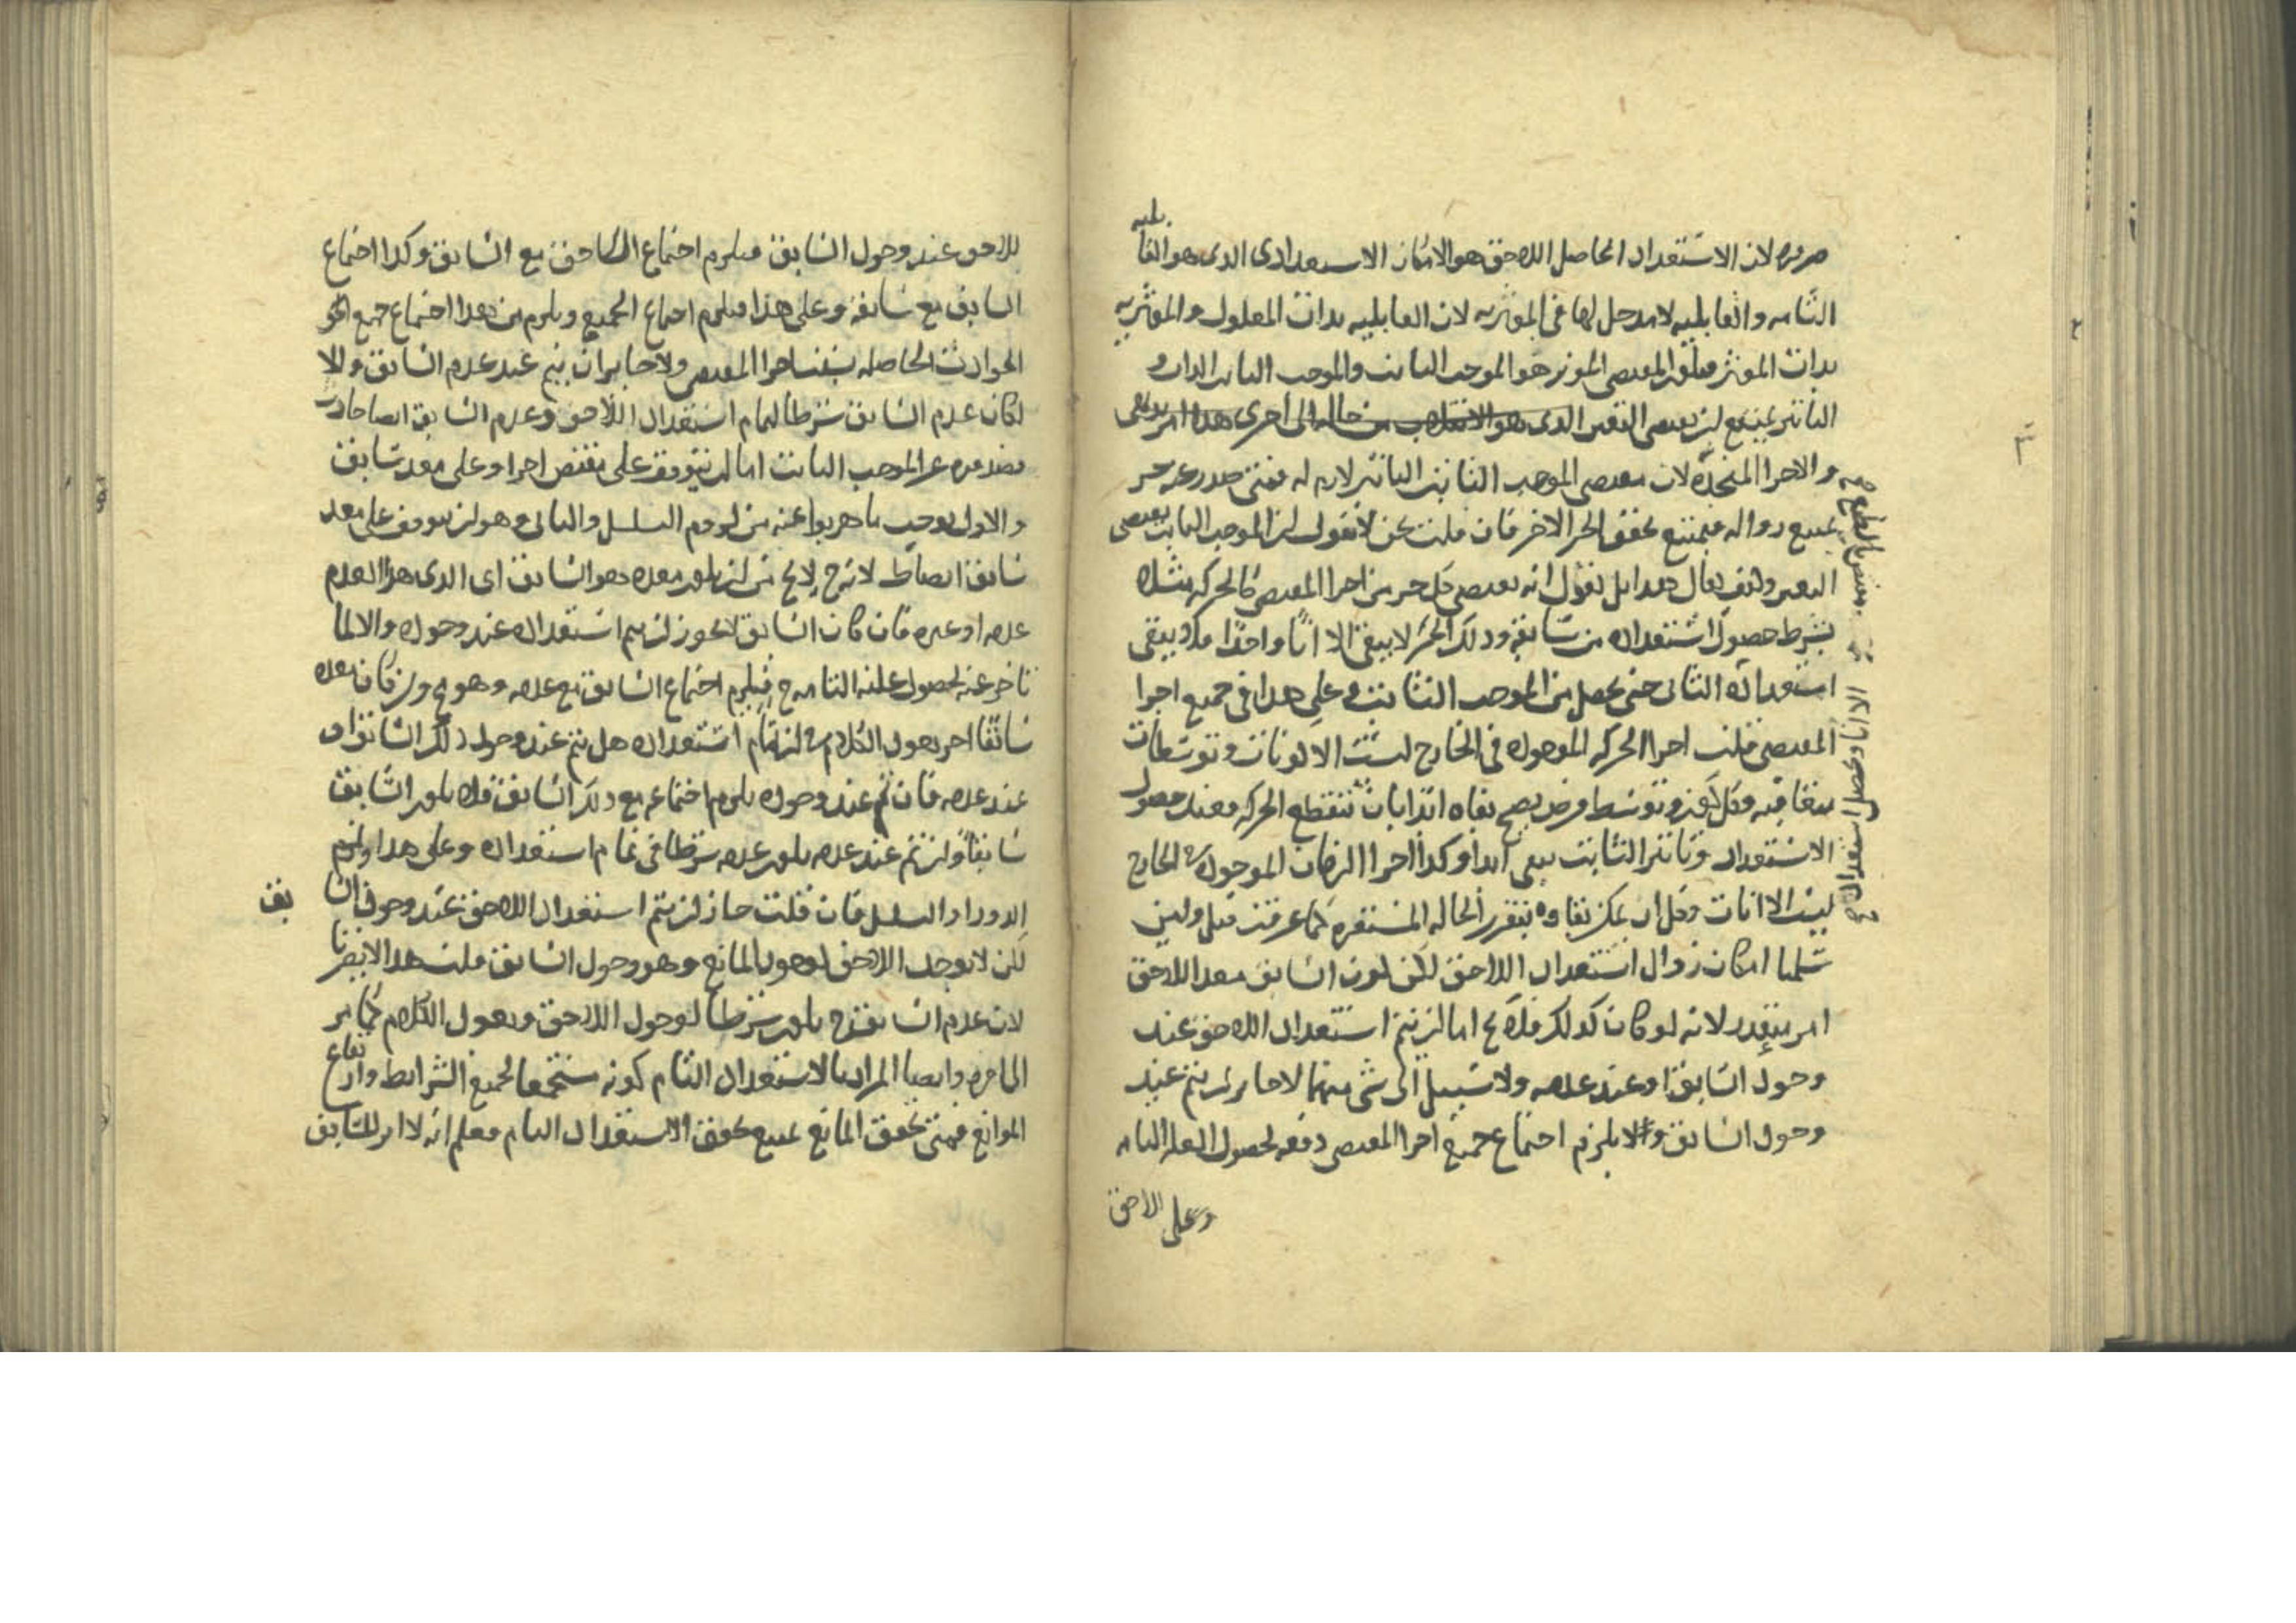 ضروره لان الاستعداد الحاصل اللاحق هو الامكان الاستعدادى الذى هو القابليه
التامه والقابليه لا مدخل لها فى الموثريه لان القابليه بذات المعلول والموثريه
بذات الموثر فيكون المقتضى الموثر هو الموجب الثابت والموجب الثابت الذات و
التاثير يمتنع ان يقتضى التغير الذى هو الانتقال من حاله الى اخرى هذا امر
والاجزا المتجدده لان مقتضى الموجب الثابت التاثير لازم له فمتى صدر عنه جز
يمتنع زواله فيمتنع تحقق الجز الاخر فان قلت نحن لا نقول ان الموجب الثابت يقتضى
التغير وكيف يقال هذا بل نقول انه يقتضى كل جز من اجزا المقتضى كالحركه مثلا
بشرط حصول استعداده من سابقه وذلك الجز لا يبقى الا انا واحدا
استعداده الثانى حتى يحصل من الموجب الثابت وعلى هذا فى جميع اجزا
المقتضى قلت اجزا الحركه الموجوده فى الخارج ليست الا اكوانات وتوسطات
متعاقبه وكل كون وتوسط فرض يصح بقاه ابدا بان تنقطع الحركه فعند حصول
الاستعداد وتاثير الثابت يبقى ابدا وكذا اجزا الزمان الموجود فى الخارج
ليست الا انات وكل ان يمكن بقاوه بتقرر الحاله المستقره كما عرفت قبل ولين
سلمنا امكان زوال استعداد اللاحق لكن كون السابق معدا للاحق
امر متعذر لانه لو كان كذلك فلا يخ اما ان يتم استعداد اللاحق عند
وجود السابق او عند عدمه ولا سبيل الى شى منهما لا جايز ان يتم عند
وجود السابق والا يلزم اجتماع جميع اجزا المقتضى دفعه لحصول العله التامه
وعلى اللاحق
الا انا وحصل استعداد
للاحق عند وجود السابق فيلزم اجتماع اللاحق مع السابق وكذا اجتماع
السابق مع سابقه وعلى هذا فيلزم اجتماع الجميع ويلزم من هذا اجتماع جميع
الحوادث الحاصله بسبب اجزا المقتضى ولا جايز ان يتم عند عدم السابق والا
لكان عدم السابق شرطا لتمام استعداد اللاحق وعدم السابق ايضا حادث
فصدوره عن الموجب الثابت اما ان يتوقف على مقتض اجزا او على معد سابق
والاول يوجب ما هربوا عنه من لزوم التسلسل والثانى وهو ان يتوقف على معد
سابق ايضا ط لانه ح لا يخ من ان يكون معده هو السابق اى الذى هذا العدم
عدمه او غيره فان كان السابق لا يجوز ان يتم استعداده عند وجوده والا لما
تاخر عنه لحصول علته التامه ح فيلزم اجتماع السابق مع عدمه وهو مح وان كان معده
سابقا اخر يعود الكلام فى ان تمام استعداده هل يتم عند وجود ذلك السابق او
عند عدمه فان تم عند وجوده يلزم اجتماعه مع ذلك السابق فلا يكون السابق
سابقا وان تم عند عدمه يكون عدمه شرطا فى تمام استعداده وعلى هذا ويلزم
الدور او التسلسل فان قلت جاز ان يتم استعداد اللاحق عند وجود السابق
لكن لا يوجد اللاحق لوجود المانع وهو وجود السابق قلت هذا لا يضرنا
لان عدم السابق ح يكون شرطا لوجود اللاحق ويعود الكلام كما مر
الى اخره وايضا المراد بالاستعداد التام كونه مستجمعا لجميع الشرايط وارتفاع
الموانع فمتى تحقق المانع يمتنع تحقق الاستعداد التام فعلم انه لا اثر للسابق